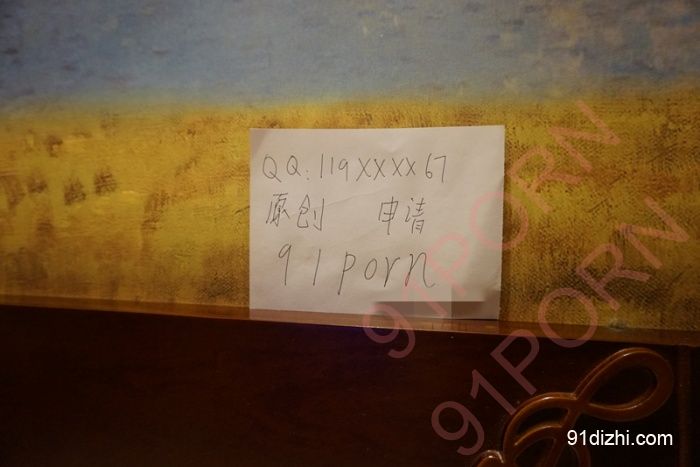 QQ:119XXXX67
原创 申请
91porn
91PORN
91PORN
91dizhi.com